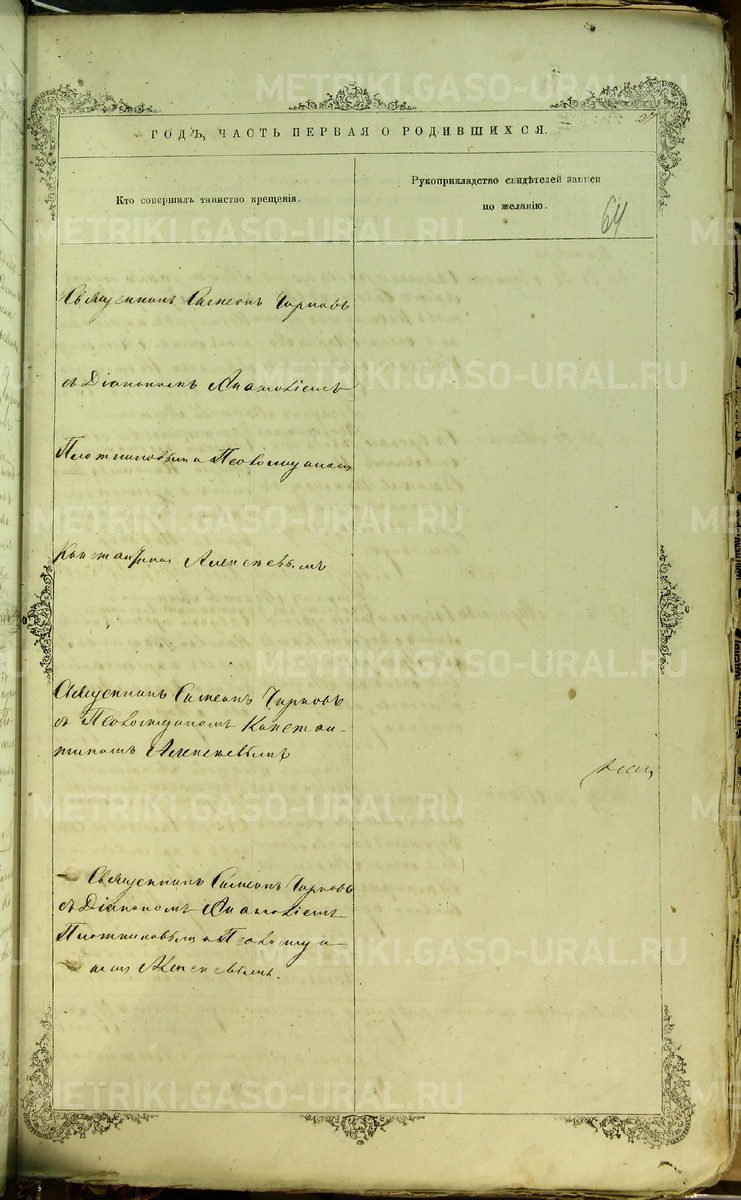 27
ГОДЪ, ЧАСТЬ ПЕРВАЯ О РОДИВШИХСЯ.
Кто совершалъ таинство крещенія.
Рукоприкладство свидѣтелей записи
по желанію.
64
Священникъ Симеонъ Чирковъ
съ Діакономъ Анатоліемъ
Плотниковымъ и Псаломщикомъ
Константиномъ Алексеевымъ
Священникъ Симеонъ Чирковъ
съ Псаломщикомъ Констан-
тиномъ Алексеевымъ
Священникъ Симеонъ Чирковъ
съ Діакономъ Анатоліемъ
Плотниковымъ и Псаломщи
комъ Алексеевымъ.
METRIKI.GASO-URAL.RU